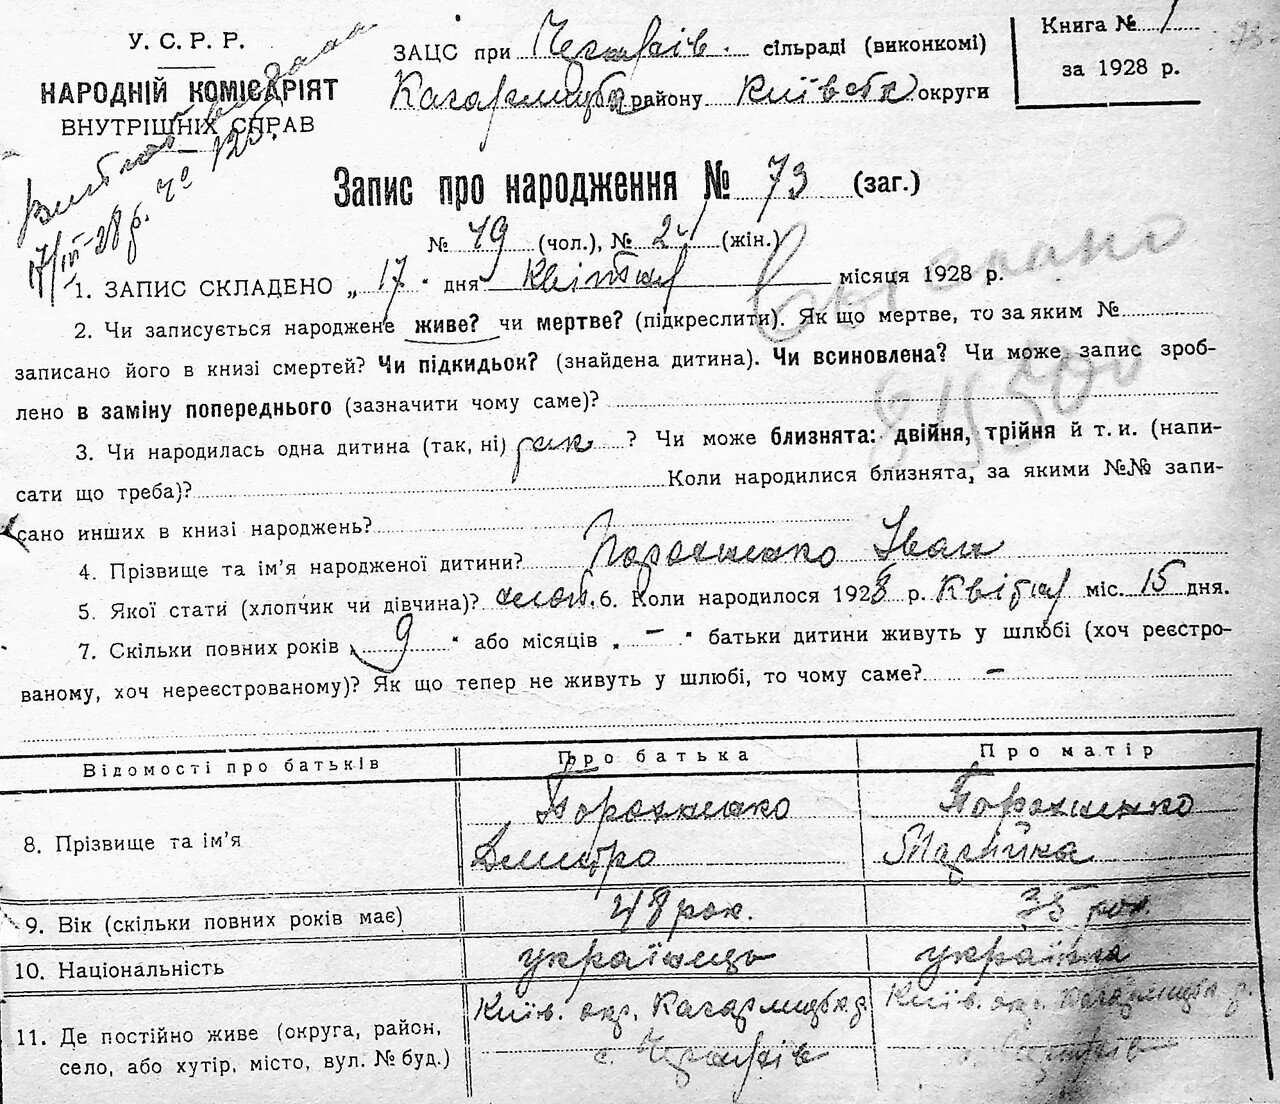 У. С. Р. Р.
НАРОДНІЙ КОМІСАРІЯТ
ВНУТРІШНІХ СПРАВ
ЗАЦС при сільраді (виконкомі)
Кагарлицьк. району Київськ. округи
Книга № 1
за 1928 р.
73
Запис про народження № 73 (заг.)
№ 49 (чол.), № 24 (жін.)
1. ЗАПИС СКЛАДЕНО „ 17 " дня Квітня місяця 1928 р.
2. Чи записується народжене живе? чи мертве? (підкреслити). Як що мертве, то за яким №
записано його в книзі смертей? Чи підкидьок? (знайдена дитина). Чи всиновлена? Чи може запис зроб-
лено в заміну попереднього (зазначити чому саме)?
3. Чи народилась одна дитина (так, ні) так ? Чи може близнята: двійня, трійня й т. и. (напи-
сати що треба)? Коли народилися близнята, за якими №№ запи-
сано инших в книзі народжень?
4. Прізвище та ім'я народженої дитини? Порохненко Іван
5. Якої стати (хлопчик чи дівчина)? хлоп. 6. Коли народилося 1928 р. Квітня міс. 15 дня.
7. Скільки повних років „ 9 " або місяців „ – " батьки дитини живуть у шлюбі (хоч реєстро-
ваному, хоч нереєстрованому)? Як що тепер не живуть у шлюбі, то чому саме? –
Відомості про батьків Про батька Про матір
8. Прізвище та ім'я Порохненко Дмитро Порохненко Марійка
9. Вік (скільки повних років має) 48 рок. 35 рок.
10. Національність українець українка
11. Де постійно живе (округа, район, Київ. окр. Кагарлицьк. р. Київ. окр. Кагарлицьк. р.
село, або хутір, місто, вул. № буд.) с. с.